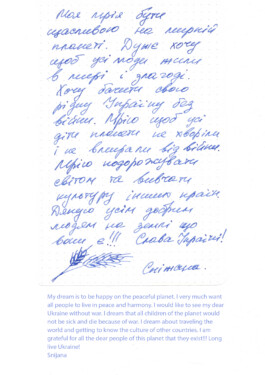 Моя мрія бути
щасливою на мирній
планеті. Дуже хочу
щоб усі люди жили
в мирі і злагоді.
Хочу бачити свою
рідну Україну без
війни. Мрію щоб усі
діти планети не хворіли
і не вмирали від війни.
Мрію подорожувати
світом та вивчати
культуру інших країн.
Дякую усім добрим
людям на землі що
вони є!!! Слава Україні!
Сніжана.
My dream is to be happy on the peaceful planet. I very much want
all people to live in peace and harmony. I would like to see my dear
Ukraine without war. I dream that all children of the planet would
not be sick and die because of war. I dream about traveling the
world and getting to know the culture of other countries. I am
grateful for all the dear people of this planet that they exist!!! Long
live Ukraine!
Snijana